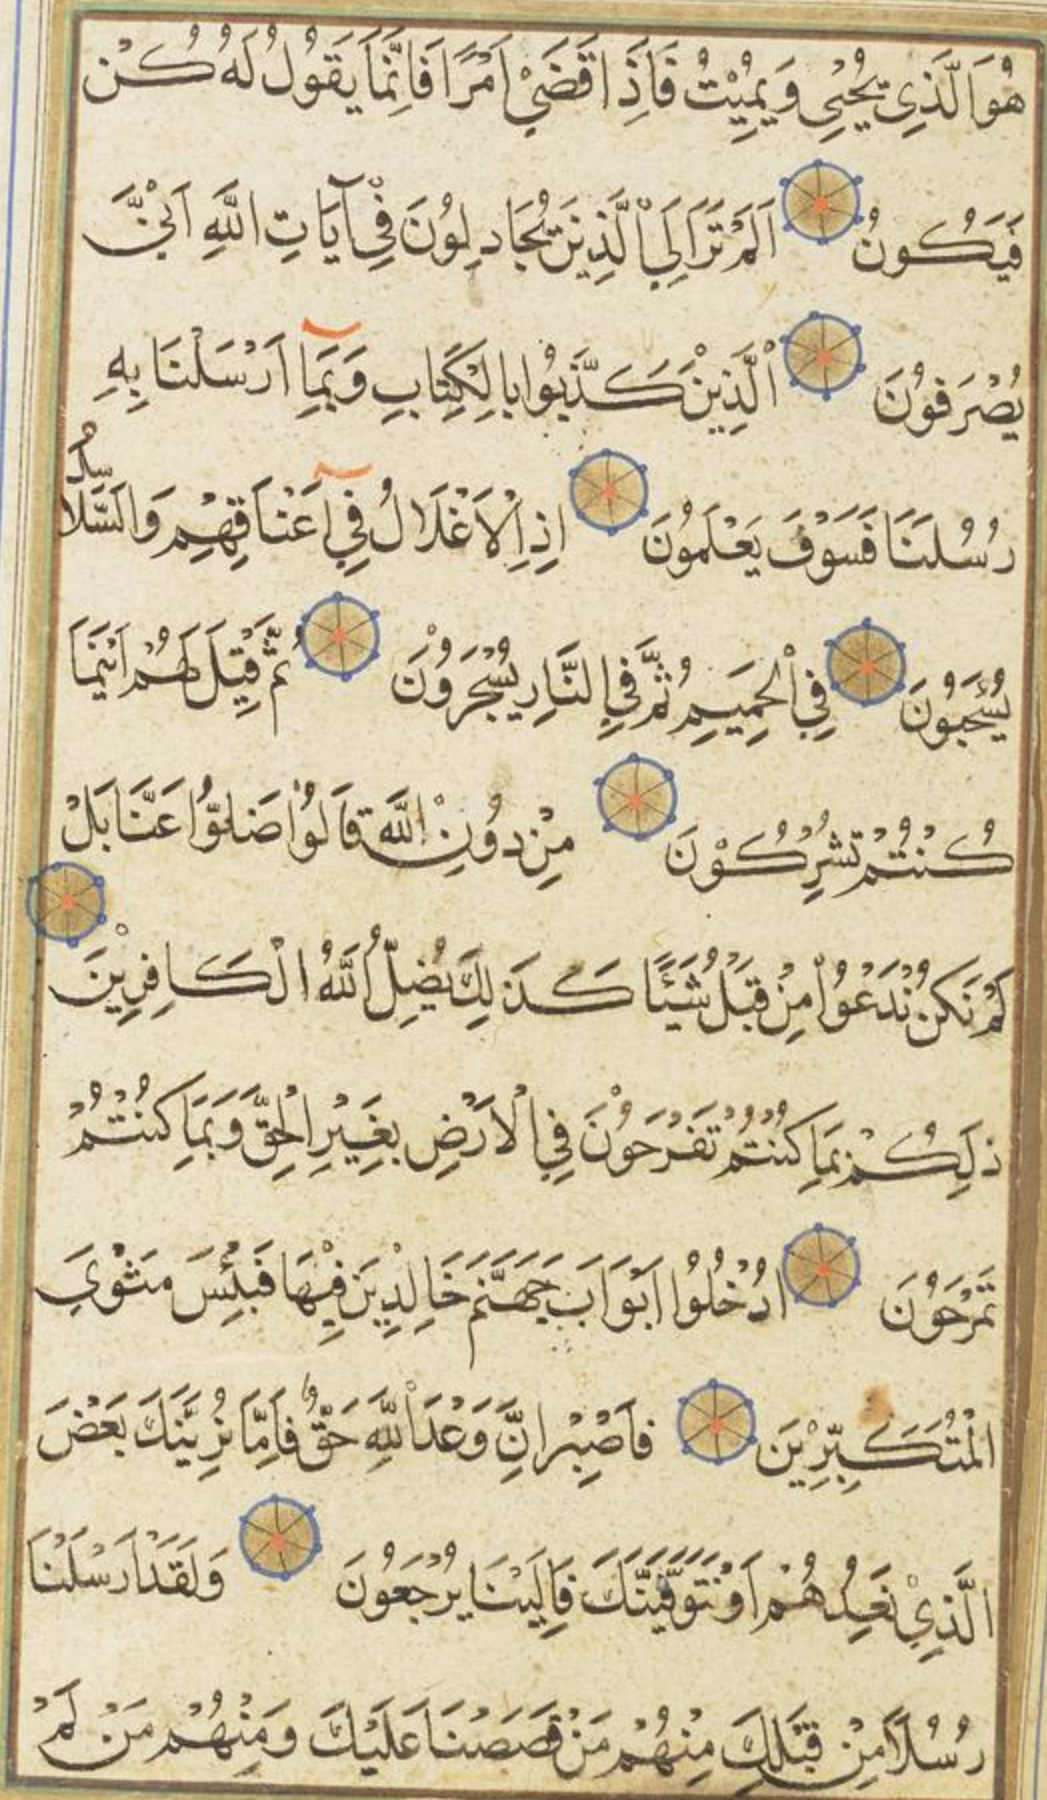 هُوَ الَّذِي يُحْيِي وَيُمِيْتُ فَاِذَا قَضَيْ اَمْرًا فَاِنَّمَا يَقُولُ لَهُ كُنْ
فَيَكُونُ اَلَمْ تَرَ اِلَي الَّذِيْنَ يُجَادِلُونَ فِي آيَاتِ اللَّهِ اَنّيْ
يُصْرَفُوْنَ اَلَّذِيْنَ كَذَّبُوْا بِالْكِتَابِ وَبِمَا اَرْسَلْنَا بِهِ
رُسُلَنَا فَسَوْفَ يَعْلَمُوْنَ اِذِ الْاَغْلَالُ فِي اَعْنَاقِهِمْ وَالسَّلَاسِلُ
يُسْحَبُوْنَ فِي الْحَمِيْمِ ثُمَّ فِي النَّارِ يُسْجَرُوْنَ ثُمَّ قِيْلَ لَهُمْ اَيْنَمَا
كُنْتُمْ تُشْرِكُوْنَ مِنْ دُوْنِ اللَّهِ قَالُوْا ضَلُّوْا عَنَّا بَلْ
لَمْ نَكُنْ نَدْعُوْا مِنْ قَبْلُ شَيْئًا كَذَلِكَ يُضِلُّ اللَّهُ الْكَافِرِيْنَ
ذَلِكُمْ بِمَا كُنْتُمْ تَفْرَحُوْنَ فِي الْاَرْضِ بِغَيْرِ الْحَقِّ وَبِمَا كُنْتُمْ
تَمْرَحُوْنَ ادْخُلُوْا اَبْوَابَ جَهَنَّمَ خَالِدِيْنَ فِيْهَا فَبِئْسَ مَثْوَي
الْمُتَكَبِّرِيْنَ فَاصْبِرْ اِنَّ وَعْدَ اللَّهِ حَقٌّ فَاِمَّا نُرِيَنَّكَ بَعْضَ
الَّذِيْ نَعِدُهُمْ اَوْ نَتَوَفَّيَنَّكَ فَاِلَيْنَا يُرْجَعُوْنَ وَلَقَدْ اَرْسَلْنَا
رُسُلًا مِنْ قَبْلِكَ مِنْهُمْ مَنْ قَصَصْنَا عَلَيْكَ وَمِنْهُمْ مَنْ لَمْ